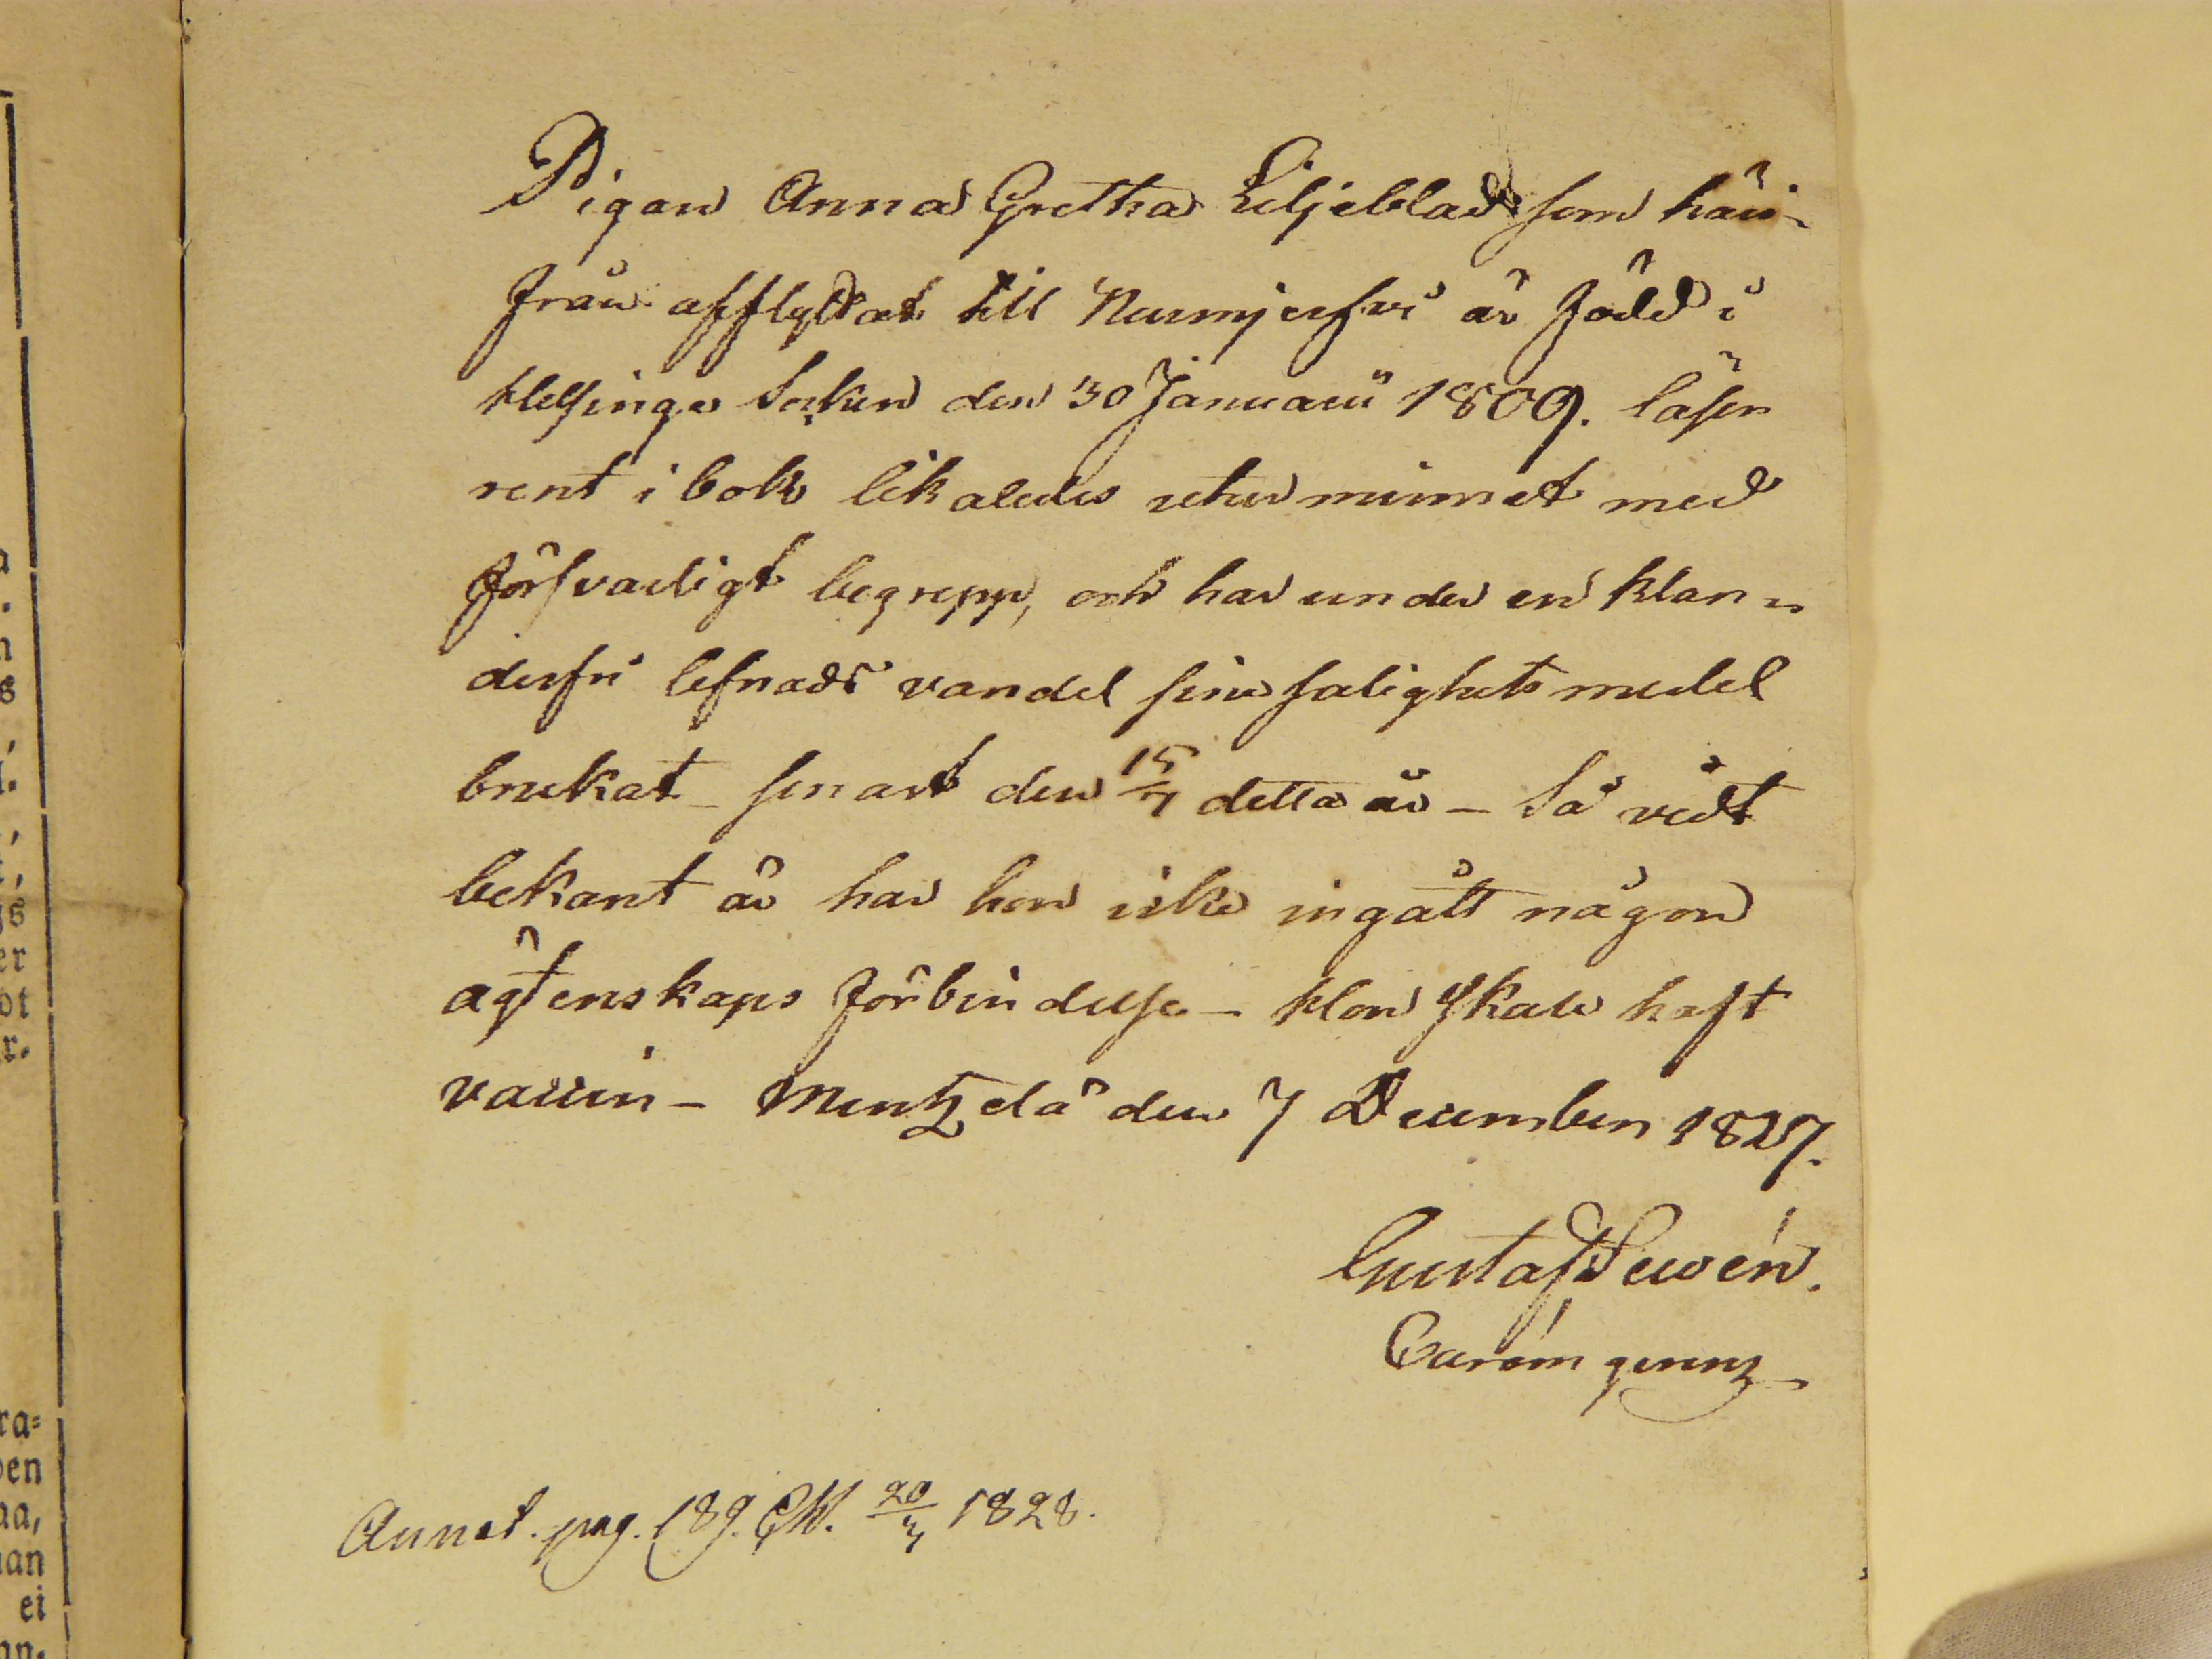 Pigan Anna Gretha Liljeblad som häri-
från afflyttat till Nurmijerfvi är född i
Helsinge Socken den 30 Januarii 1809. läser
rent i bok likaledes utur minnet med
försvarligt begrepp, och har under en klan-
derfri lefnads vandel sina salighets medel
brukat - senast den 15/7 detta år - Så vidt
bekant är har hon icke ingått någon
ägtenskaps förbindelse - Hon skall haft
vaccin - Mentzelä den 7 December 1827.
Gustaf
Annot. pag. 189. 20/4 1828.
a
.
n
s
,
.
,
,
gs
er
ot
r.
ra=
en
aa,
an
ei
an.